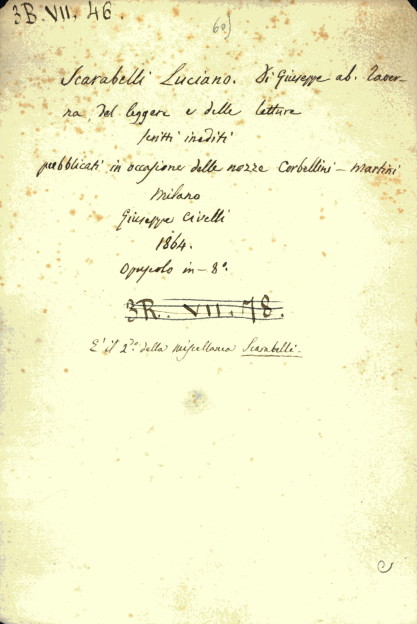 3B. VII, 46.
60)
Scarabelli Luciano. Di Giuseppe ab. Taver-
na, del leggere e delle letture
scritti inediti
pubblicati in occasione delle nozze Corbellini - Martini
Milano
Giuseppe Civelli
1864.
Opuscolo in-8°.
3R. VII. 78.
E' il 2.° della miscellanea Scarabelli.